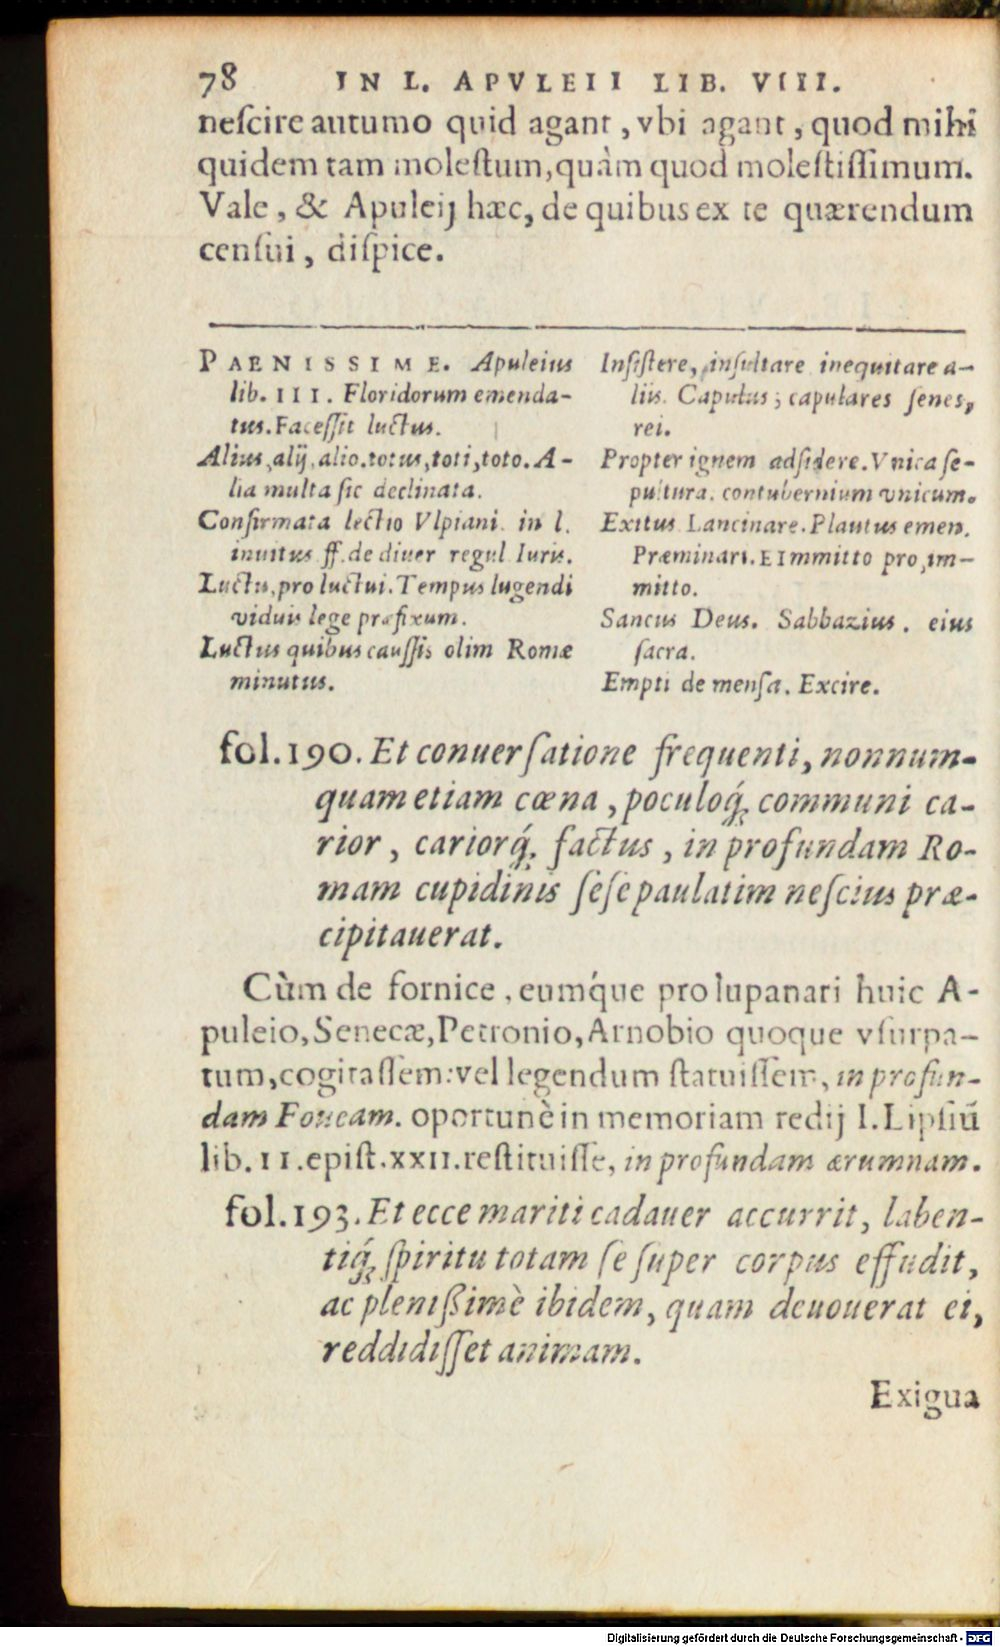 78 IN L. APVLEII LIB. VIII.
neſcire autumo quid agant, vbi agant, quod mihi
quidem tam moleſtum, quàm quod moleſtiſſimum.
Vale, & Apuleij hæc, de quibus ex te quærendum
cenſui, diſpice.
PAENISSIME. Apuleius
lib. III. Floridorum emenda-
tus. Faceſſit luctus.
Alius, alij, alio. totus, toti, toto. A-
lia multa ſic declinata.
Confirmata lectio Vlpiani in l.
inuitus ff. de diuer regul Iuris.
Luctu, pro luctui. Tempus lugendi
viduis lege præfixum.
Luctus quibus cauſſis olim Romæ
minutus.
Inſiſtere, inſultare inequitare a-
liis. Capulus; capulares ſenes,
rei.
Propter ignem adſidere. Vnica ſe-
pultura. contubernium vnicum.
Exitus Lancinare. Plautus emen.
Præminari. EImmitto pro, im-
mitto.
Sancus Deus. Sabbazius. eius
ſacra.
Empti de menſa. Excire.
fol. 190. Et conuerſatione frequenti, nonnum-
quam etiam cœna, poculoq́; communi ca-
rior, cariorq́; factus, in profundam Ro-
mam cupidinis ſeſe paulatim neſcius præ-
cipitauerat.
Cùm de fornice, eumq́ue pro lupanari huic A-
puleio, Senecæ, Petronio, Arnobio quoque vſurpa-
tum, cogitaſſem: vel legendum ſtatuiſſem, in profun-
dam Foueam. oportunè in memoriam redij I. Lipſiū
lib. II. epiſt. XXII. reſtituiſſe, in profundam ærumnam.
fol. 193. Et ecce mariti cadauer accurrit, laben-
tiq́; ſpiritu totam ſe ſuper corpus effudit,
ac pleniſſimè ibidem, quam deuouerat ei,
reddidiſſet animam.
Exigua
Digitalisierung gefördert durch die Deutsche Forschungsgemeinschaft - DFG